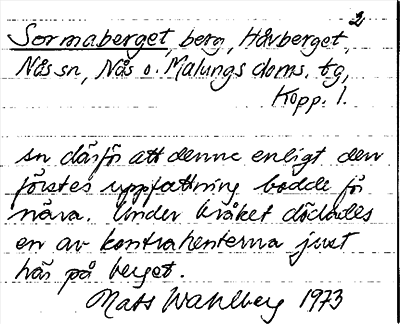 2
Sormaberget, berg, Håvberget,
Nås sn, Nås o. Malungs doms. tg,
Kopp. l.
sn därför att denne enligt den
förstes uppfattning bodde för
nära. Under bråket dödades
en av kontrahenterna just
här på berget.
Mats Wahlberg 1973